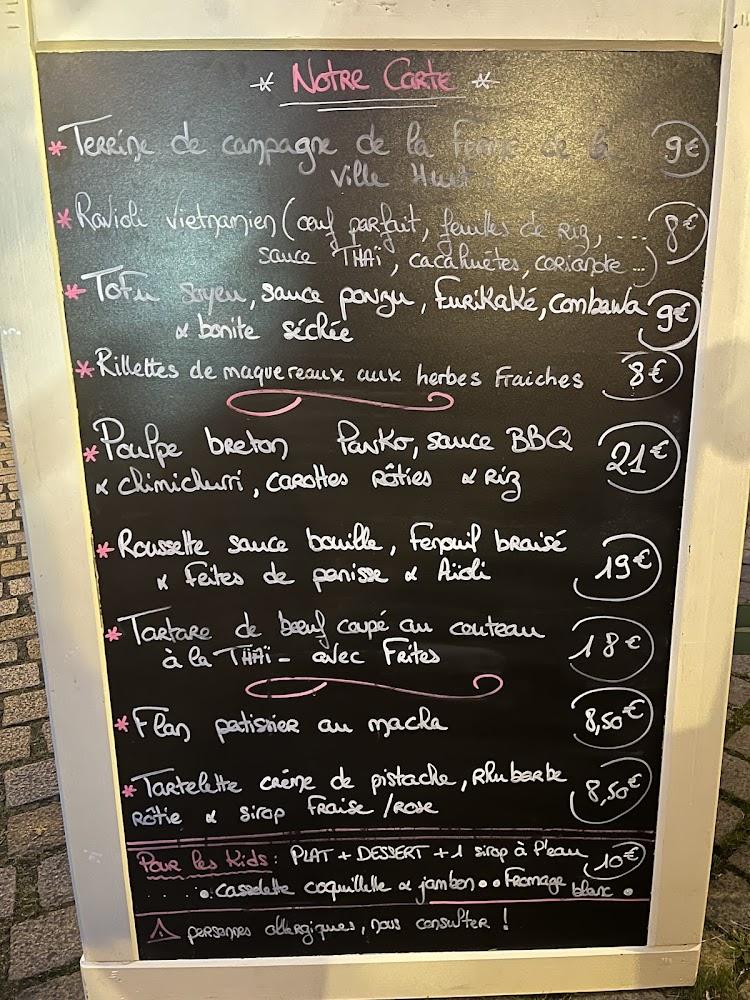 * Notre Carte *
* Terrine de campagne de la Ferme de la 9€
Ville Huet
* Ravioli vietnamien (œuf parfait, feuilles de riz, ... 8€
sauce THAÏ, cacahuètes, coriandre ...)
* Tofu soyeu, sauce ponzu, Furikaké, combawa 9€
& bonite séchée
* Rillettes de maquereaux aux herbes Fraiches 8€
* Poulpe breton Panko, sauce BBQ 21€
& chimichurri, carottes rôties & Riz
* Roussette sauce bouille, Fenouil braisé 19€
& Frites de panisse & Aïoli
* Tartare de bœuf coupé au couteau 18€
à la THAÏ - avec Frites
* Flan patissier au macha 8,50€
* Tartelette crème de pistache, Rhubarbe 8,50€
Rôtie & sirop Fraise / Rose
Pour les Kids : PLAT + DESSERT + 1 sirop à l'eau 10€
• cassolette coquillette & jambon • • Fromage blanc •
⚠ personnes allergiques, nous consulter !